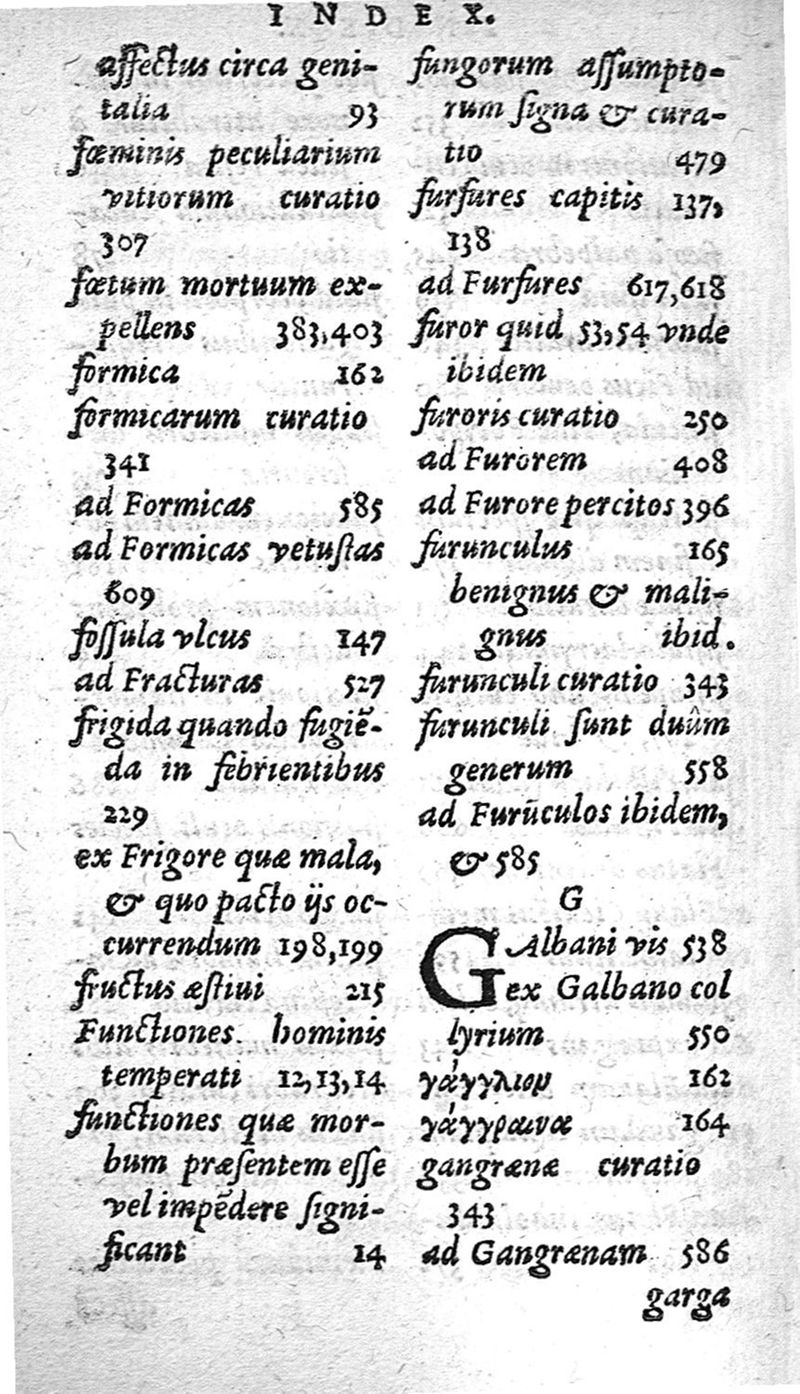 INDEX.
affectus circa geni-
talia 93
fœminis peculiarium
vitiorum curatio
307
fœtum mortuum ex-
pellens 383,403
formica 162
formicarum curatio
341
ad Formicas 585
ad Formicas vetuſtas
609
foſſula vlcus 147
ad Fracturas 527
frigida quando fugiẽ-
da in febrientibus
229
ex Frigore quæ mala,
& quo pacto ijs oc-
currendum 198,199
fructus æſtiui 215
Functiones hominis
temperati 12,13,14
functiones quæ mor-
bum præſentem eſſe
vel impẽdere ſigni-
ficant 14
fungorum aſſumpto-
rum ſigna & cura-
tio 479
furfures capitis 137,
138
ad Furfures 617,618
furor quid 53,54 vnde
ibidem
furoris curatio 250
ad Furorem 408
ad Furore percitos 396
furunculus 165
benignus & mali-
gnus ibid.
furunculi curatio 343
furunculi ſunt duûm
generum 558
ad Furũculos ibidem,
& 585
G
GAlbani vis 538
ex Galbano col
lyrium 550
γάγγλιον 162
γάγγραινα 164
gangrænæ curatio
343
ad Gangrænam 586
garga